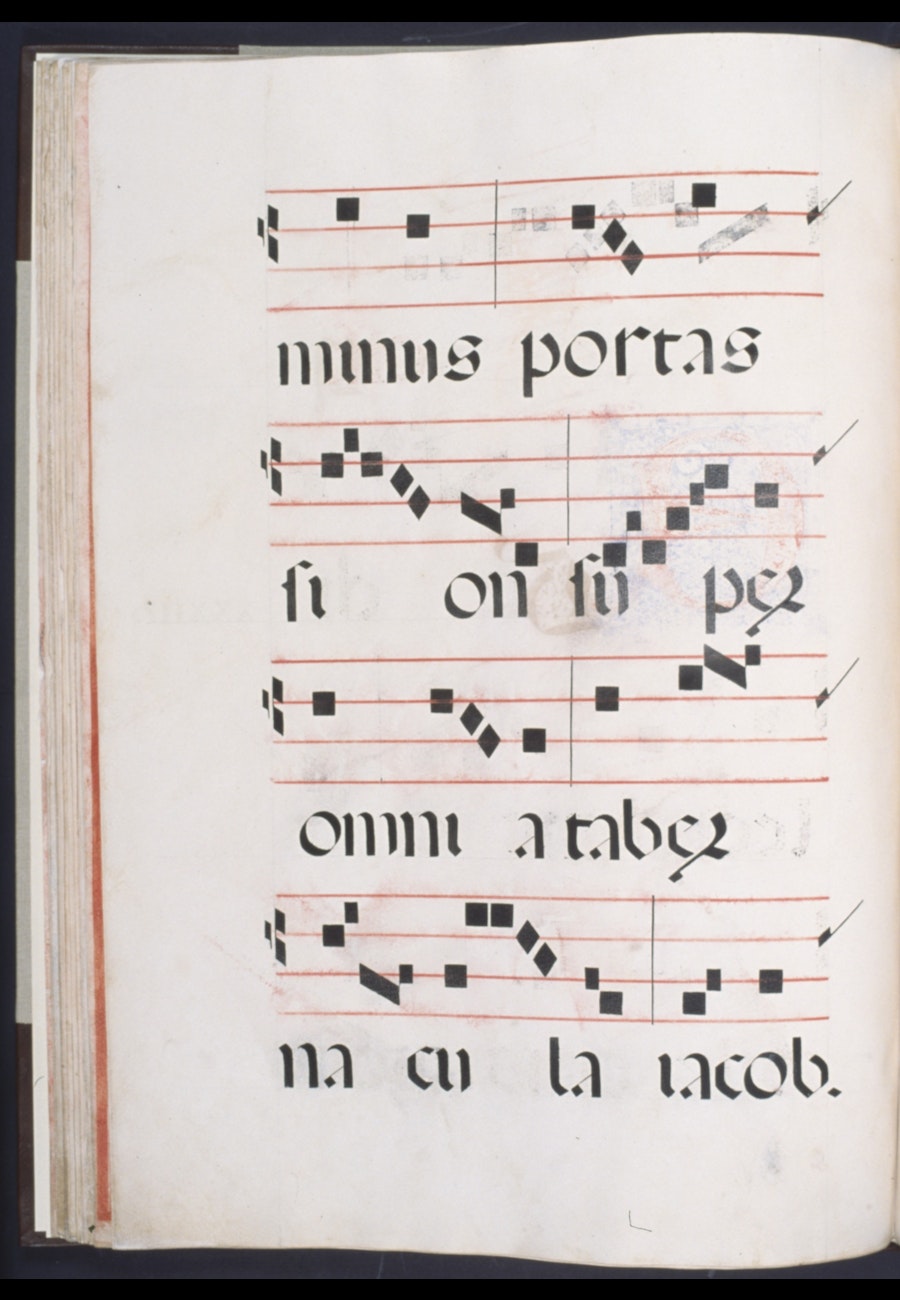 minus portas
si on su per
omni a taber
na cu la iacob.